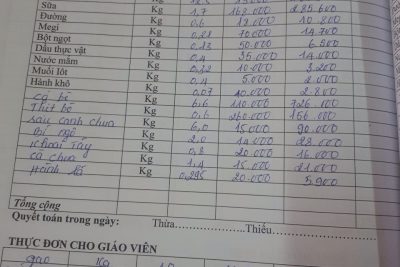 Kg 12,5 15.000
Sữa Kg 1,7 168.000 285.600
Đường Kg 0,6 18.000 10.800
Megi Kg 0,21 70.000 14.700
Bột ngọt Kg 0,13 50.000 6.500
Dầu thực vật Kg 0,4 35.000 14.000
Nước mắm Kg 0,32 10.000 3.200
Muối Iốt Kg 0,4 5.000 2.000
Hành khô Kg 0,07 40.000 2.800
Cá bè Kg 6,6 110.000 726.000
Thịt bò Kg 0,6 260.000 156.000
Sấu canh chua Kg 6,0 15.000 90.000
Bí ngô Kg 2,0 14.000 28.000
Khoai Tây Kg 0,8 20.000 16.000
Cà chua Kg 1,4 15.000 21.000
Hành lá Kg 0,295 20.000 5.900
Tổng cộng
Quyết toán trong ngày: Thừa Thiếu
THỰC ĐƠN CHO GIÁO VIÊN
gạo Kg